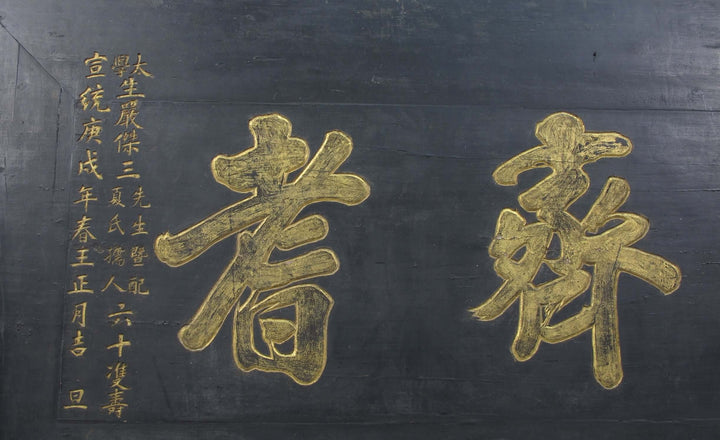 齊耆
太學生嚴傑三先生暨配夏氏孺人六十雙壽
宣統庚戌年春王正月吉旦